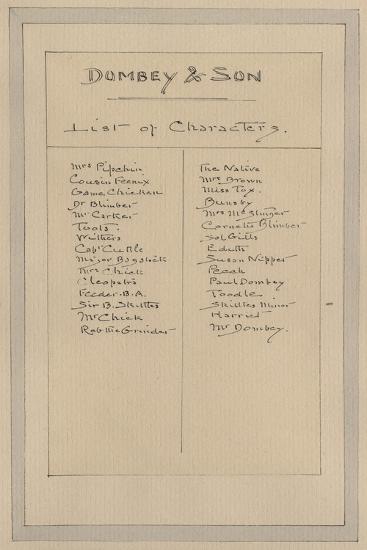 DOMBEY & SON
List of Characters.
Mrs Pipchin
Cousin Feenix
Game Chicken
Dr Blimber
Mr Carker
Toots.
Withers
Capt Cuttle
Major Bagstock
Mrs Chick
Cleopatra
Feeder. B.A.
Sir B. Skettles
Mr Chick
Rob the Grinder
The Native
Mrs Brown
Miss Tox.
Bunsby
Mrs McStinger
Cornelia Blimber
Sol Gills
Edith
Susan Nipper
Perch
Paul Dombey
Toodle.
Skettles Minor
Harriet
Mr Dombey.